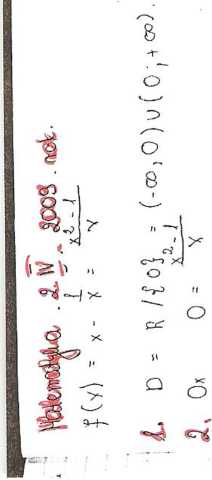 Matematyka. 2 IV. 2009. rok.
f(x) = x - 1/x = x²-1/x
1. D = R/{0} = (-∞,0)∪(0;+∞).
2. Ox 0 = x²-1/x